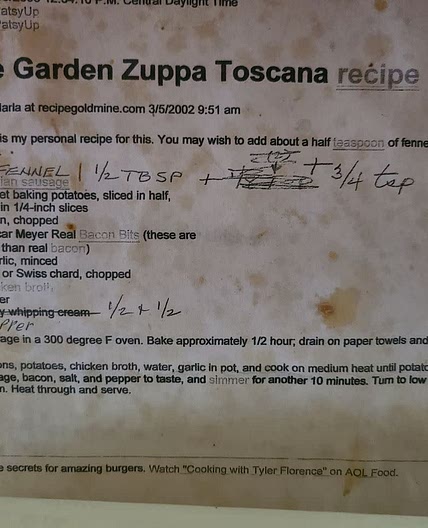 P.M. Central Daylight Time
atsyUp
PatsyUp
Garden Zuppa Toscana recipe
Marla at recipegoldmine.com 3/5/2002 9:51 am
is my personal recipe for this. You may wish to add about a half teaspoon of fenne
FENNEL 1 1/2 TBSP + + 3/4 tsp
lian sausage
et baking potatoes, sliced in half,
in 1/4-inch slices
n, chopped
car Meyer Real Bacon Bits (these are
than real bacon)
rlic, minced
or Swiss chard, chopped
ken broth
er
y whipping cream 1/2 + 1/2
age in a 300 degree F oven. Bake approximately 1/2 hour; drain on paper towels and
ons, potatoes, chicken broth, water, garlic in pot, and cook on medium heat until potato
age, bacon, salt, and pepper to taste, and simmer for another 10 minutes. Turn to low
n. Heat through and serve.
e secrets for amazing burgers. Watch "Cooking with Tyler Florence" on AOL Food.